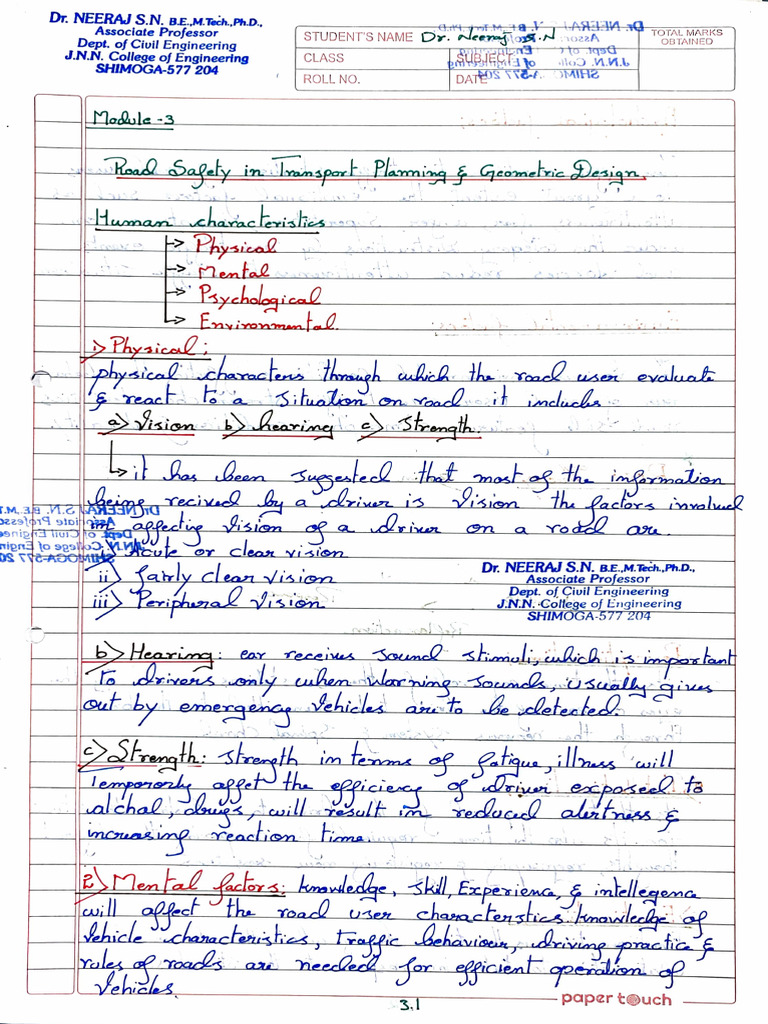 Dr. NEERAJ S.N. B.E.,M.Tech.,Ph.D.,
Associate Professor
Dept. of Civil Engineering
J.N.N. College of Engineering
SHIMOGA-577 204
STUDENT'S NAME Dr. Neeraj S.N
CLASS
SUBJECT
ROLL NO.
DATE
TOTAL MARKS
OBTAINED
Module -3
Road Safety in Transport Planning & Geometric Design.
Human characteristics
→ Physical
→ Mental
→ Psychological
→ Environmental.
i) Physical:
physical characters through which the road user evaluate
& react to a situation on road it includes
a) Vision b) hearing c) Strength.
it has been suggested that most of the information
being recived by a driver is vision the factors involved
in affecting vision of a driver on a road are.
Acute or clear vision
ii) fairly clear vision
iii) Peripheral vision
Dr. NEERAJ S.N. B.E.,M.Tech.,Ph.D.,
Associate Professor
Dept. of Civil Engineering
J.N.N. College of Engineering
SHIMOGA-577 204
b) Hearing: ear receives sound stimuli, which is important
to drivers only when warning sounds, usually gives
out by emergency vehicles are to be detected.
c) Strength: strength in terms of fatigue, illness will
Tempororly affet the efficiency of driver exposed to
alchal, drugs, will result in reduced alertness &
increasing reaction time.
2) Mental factors: knowledge, skill, Experience, & intellegence
will affect the road user characterstics knowledge of
vehicle characteristics, traffic behaviour, driving practice &
rules of roads are needed for efficient operation of
vehicles.
3.1
paper touch